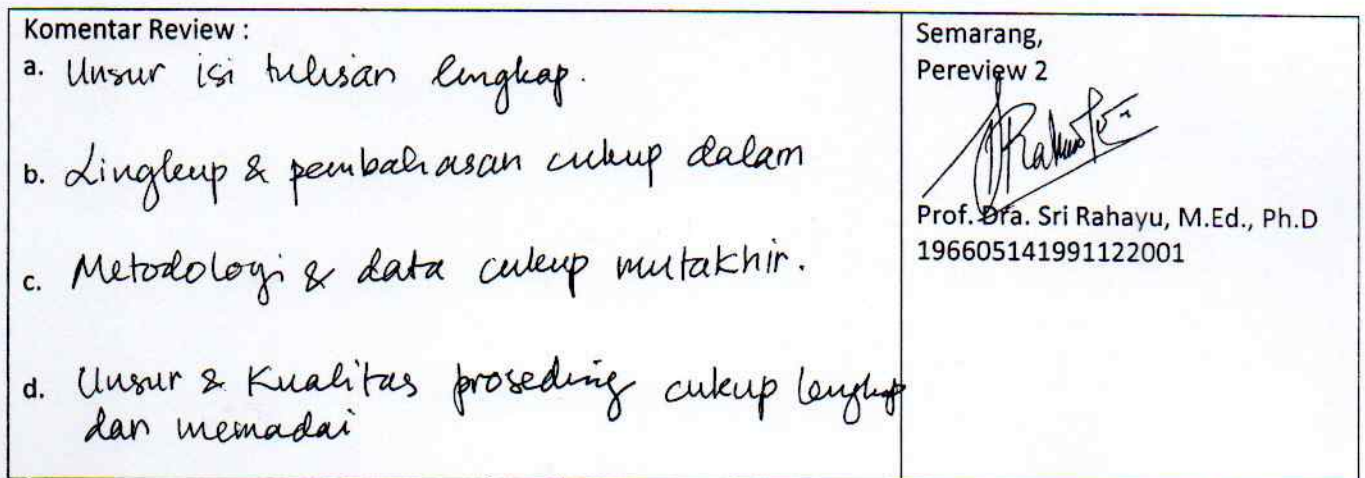 Komentar Review :
a. Unsur isi tulisan lengkap.
b. Lingkup & pembahasan cukup dalam
c. Metodologi & data cukup mutakhir.
d. Unsur & Kualitas proseding cukup lengkap
dan memadai
Semarang,
Pereview 2
Prof. Dra. Sri Rahayu, M.Ed., Ph.D
196605141991122001